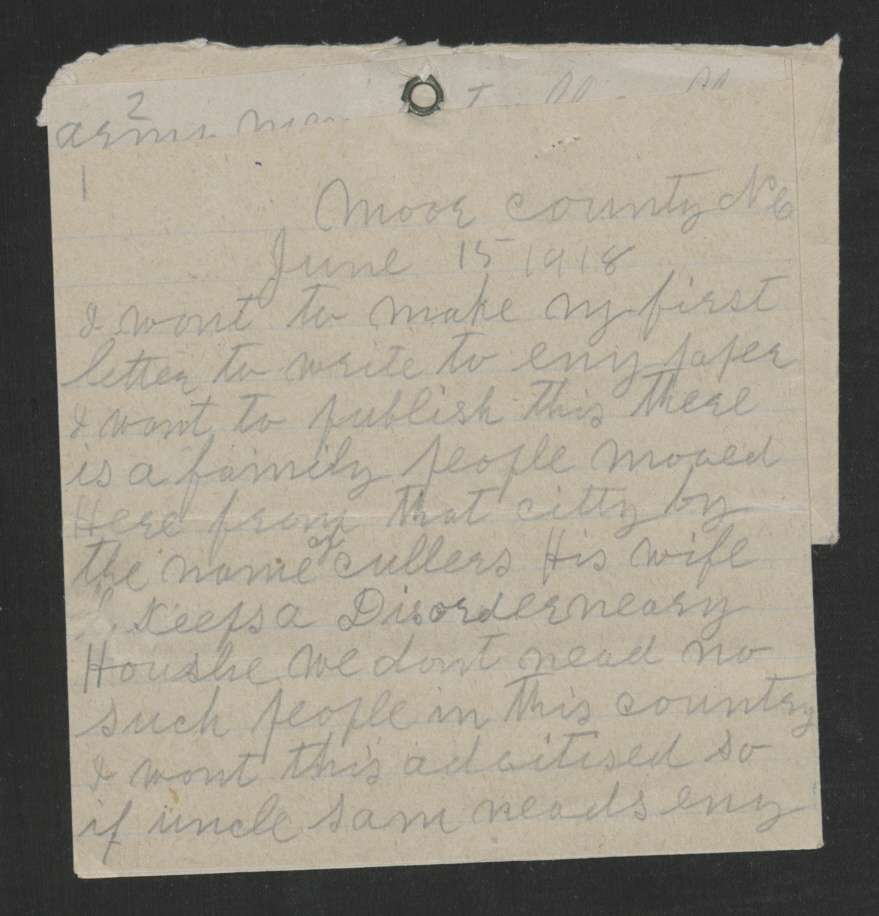 2
1
Moor county NC
June 15 1918
I wont to make my first
letter to write to eny paper
I wont to publish this there
is a faimily people moved
Here from that citty by
the name of cullers His wife
Keeps a Disorderneary
Houshe we dont nead no
such people in this country
I wont this advitised so
if uncle sam neads eny